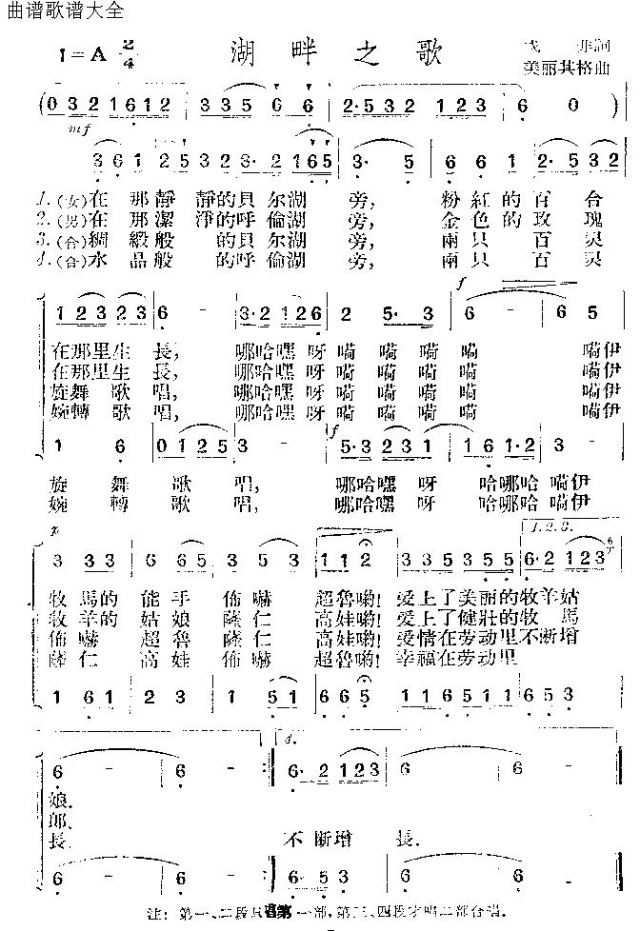 曲谱歌谱大全
1=A 2/4 湖畔之歌
美丽其格曲
(0 3 2 1 6 1 2 3 3 5 6 6 2·5 3 2 1 2 3 6 0)
mf
3 6 1 2 5 3 2 3· 2 1 6 5 3· 5 6 6 1 2· 5 3 2
1.(女)在那靜靜的貝尔湖旁,粉紅的百合
2.(男)在那潔淨的呼倫湖旁,金色的玫瑰
3.(合)綢緞般的貝尔湖旁,兩只百灵
4.(合)水晶般的呼倫湖旁,兩只百灵
f
1 2 3 2 3 6 - 3·2 1 2 6 2 5· 3 6 - 6 5
在那里生長,哪哈嘿呀嗬嗬嗬嗬嗬伊
在那里生長,哪哈嘿呀嗬嗬嗬嗬嗬伊
旋舞歌唱,哪哈嘿呀嗬嗬嗬嗬嗬伊
婉轉歌唱,哪哈嘿呀嗬嗬嗬嗬嗬伊
f
1 6 0 1 2 5 3 - 5·3 2 3 1 1 6 1·2 3 -
旋舞歌唱,哪哈嘿呀哈哪哈嗬伊
婉轉歌唱,哪哈嘿呀哈哪哈嗬伊
p 1.2.3.
3 3 3 6 6 5 3 5 3 1 1 2 3 3 5 3 5 5 6·2 1 2 3
牧馬的能手佈嚇超魯喲!爱上了美丽的牧羊姑
牧羊的姑娘薩仁高娃喲!爱上了健壯的牧馬
佈嚇超魯薩仁高娃喲!爱情在劳动里不断增
薩仁高娃佈嚇超魯喲!幸福在劳动里
1 6 1 2 3 1 5 1 6 6 5 1 1 6 5 5 5 6 5 3
4.
6 - 6 - :‖ 6· 2 1 2 3 6 6 -
娘.
郎.
長. 不断增長.
6 - 6 - :‖ 6· 5 5 3 6 6 -
注:第一、二段只唱第一部,第三、四段才唱二部合唱.